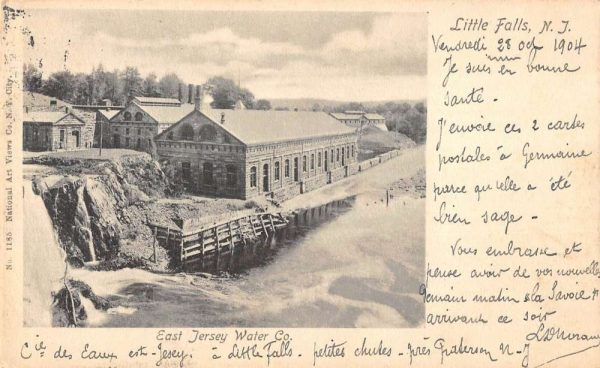 Little Falls, N. J.
Vendredi 28 oct 1904
Je suis en bonne
santé -
J'envoie ces 2 cartes
postales à Germaine
parce qu'elle a été
bien sage -
Vous embrasse et
pense avoir de vos nouvelles
demain matin "la Savoie"
arrivant ce soir
East Jersey Water Co.
Cie des Eaux est - Jesey. à Little Falls - petites chutes - près Paterson N-J
No. 1185 National Art Views Co., N. Y. City.